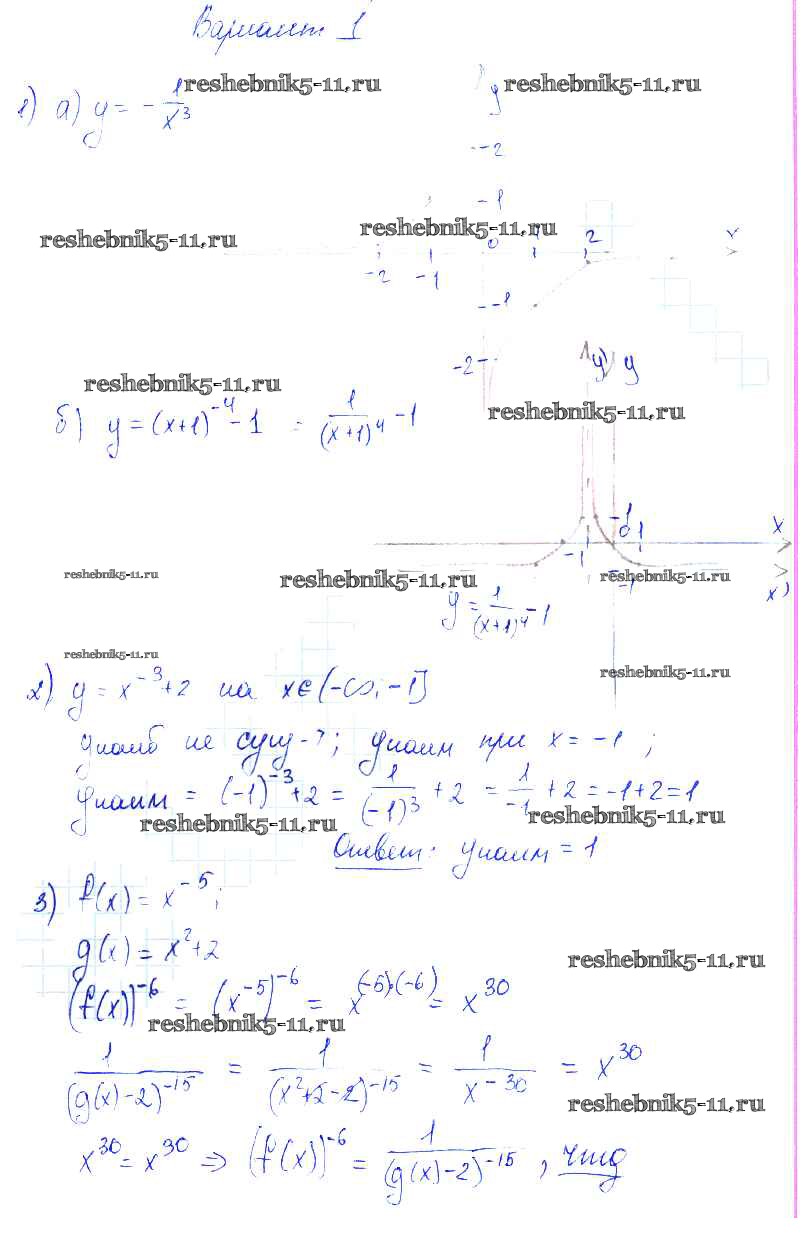 Вариант 1
reshebnik5-11.ru
reshebnik5-11.ru
1) а) y = - 1/x³
y
2
-1
reshebnik5-11.ru
reshebnik5-11.ru
-2 -1 0 1 2 x
-1
-2
reshebnik5-11.ru
y y
reshebnik5-11.ru
б) y = (x+1)⁻⁴ - 1 = 1/(x+1)⁴ - 1
-1 0 1 1 x
reshebnik5-11.ru
reshebnik5-11.ru
reshebnik5-11.ru
-1 x
y = 1/(x+1)⁴ - 1
reshebnik5-11.ru
reshebnik5-11.ru
2) y = x⁻³ + 2 на x∈(-∞; -1]
yнаиб не сущ-т; yнаим при x = -1;
yнаим = (-1)⁻³ + 2 = 1/(-1)³ + 2 = 1/-1 + 2 = -1 + 2 = 1
reshebnik5-11.ru
reshebnik5-11.ru
Ответ: yнаим = 1
3) f(x) = x⁻⁵;
g(x) = x² + 2
reshebnik5-11.ru
(f(x))⁻⁶ = (x⁻⁵)⁻⁶ = x⁽⁻⁵⁾·⁽⁻⁶⁾ = x³⁰
reshebnik5-11.ru
1/(g(x)-2)⁻¹⁵ = 1/(x²+2-2)⁻¹⁵ = 1/x⁻³⁰ = x³⁰
reshebnik5-11.ru
x³⁰ = x³⁰ ⇒ (f(x))⁻⁶ = 1/(g(x)-2)⁻¹⁵, чтд